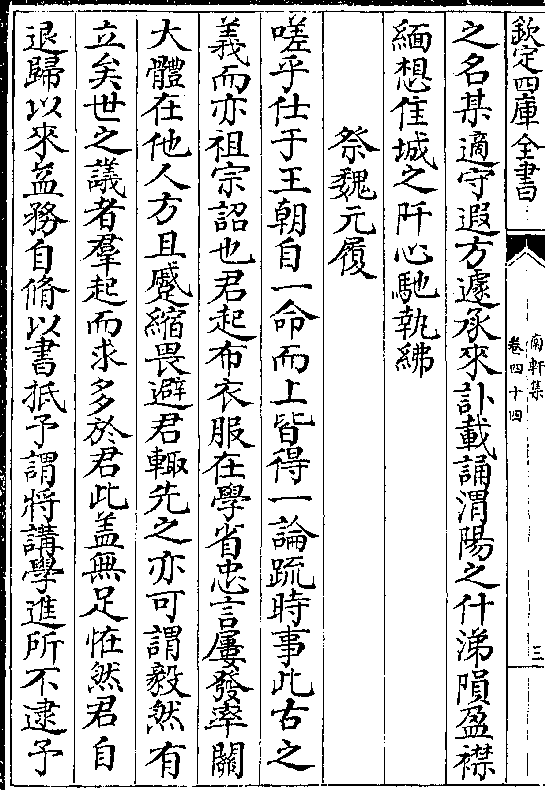 欽定四庫全書
南軒集
卷四十四
三
之名某適守遐方遽承來訃載誦渭陽之什涕隕盈襟
緬想佳城之阡心馳執紼
祭魏元履
嗟乎仕于王朝自一命而上皆得一論䟽時事此古之
義而亦祖宗詔也君起布衣服在學省忠言屢發率關
大體在他人方且蹙縮畏避君輙先之亦可謂毅然有
立矣世之議者羣起而求多於君此盖無足恠然君自
退歸以來益務自脩以書抵予謂將講學進所不逮予